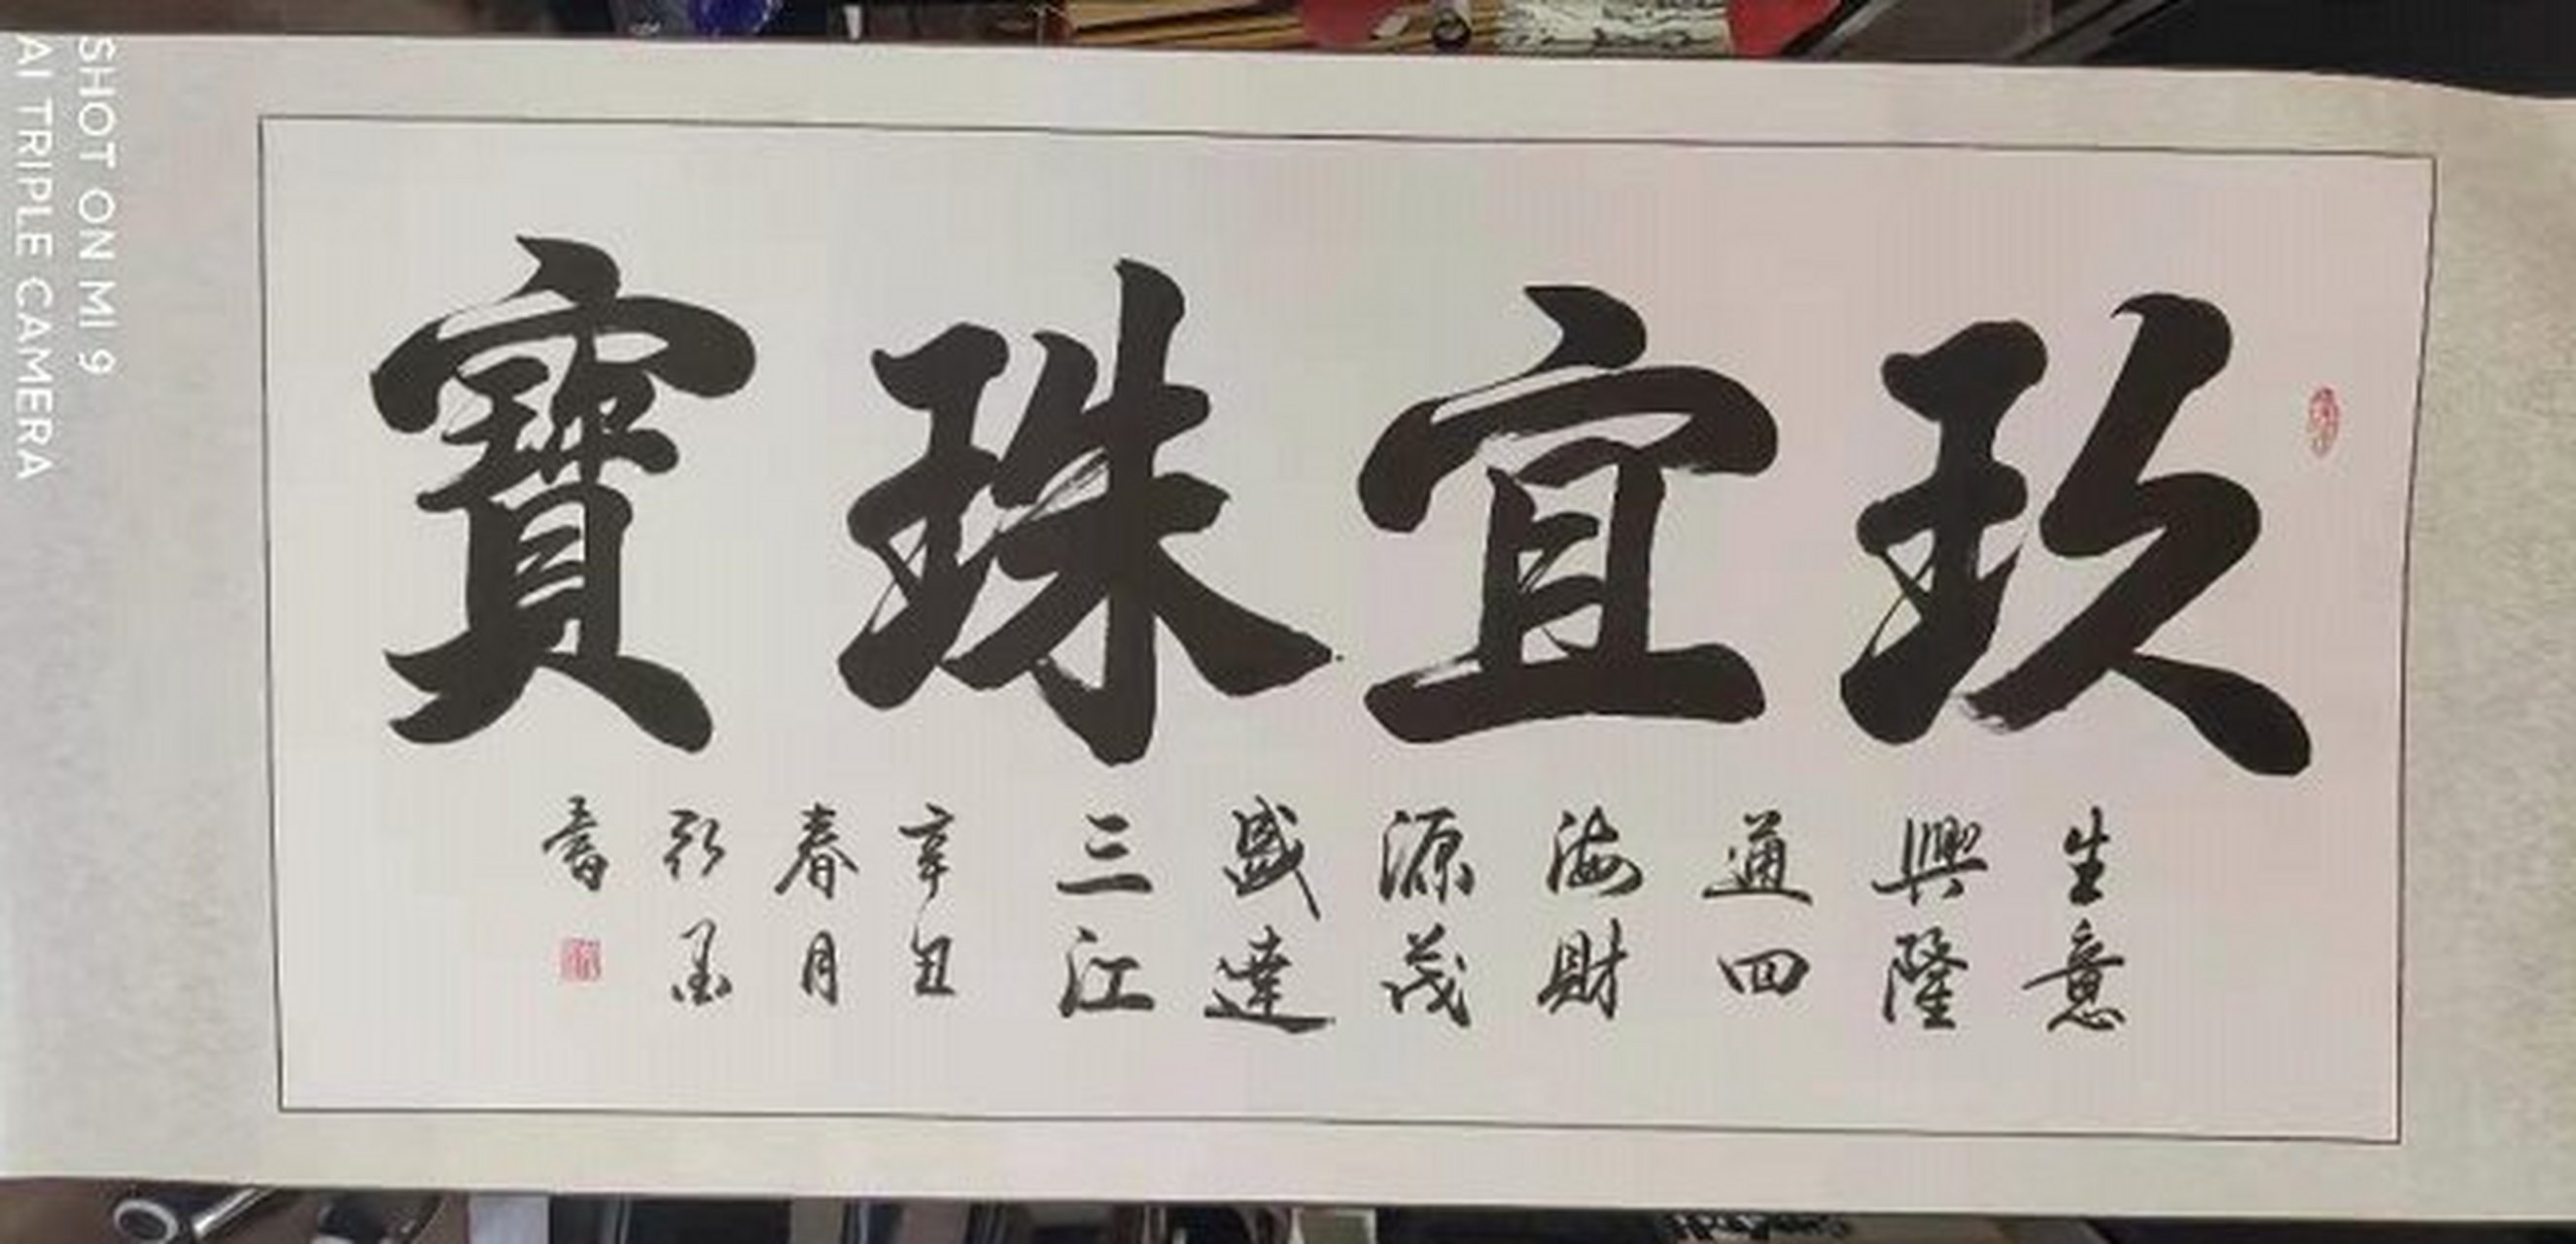 玖宜珠寶
生意
興隆
通四
海財
源茂
盛達
三江
辛丑
春月
書
SHOT ON MI 9
AI TRIPLE CAMERA